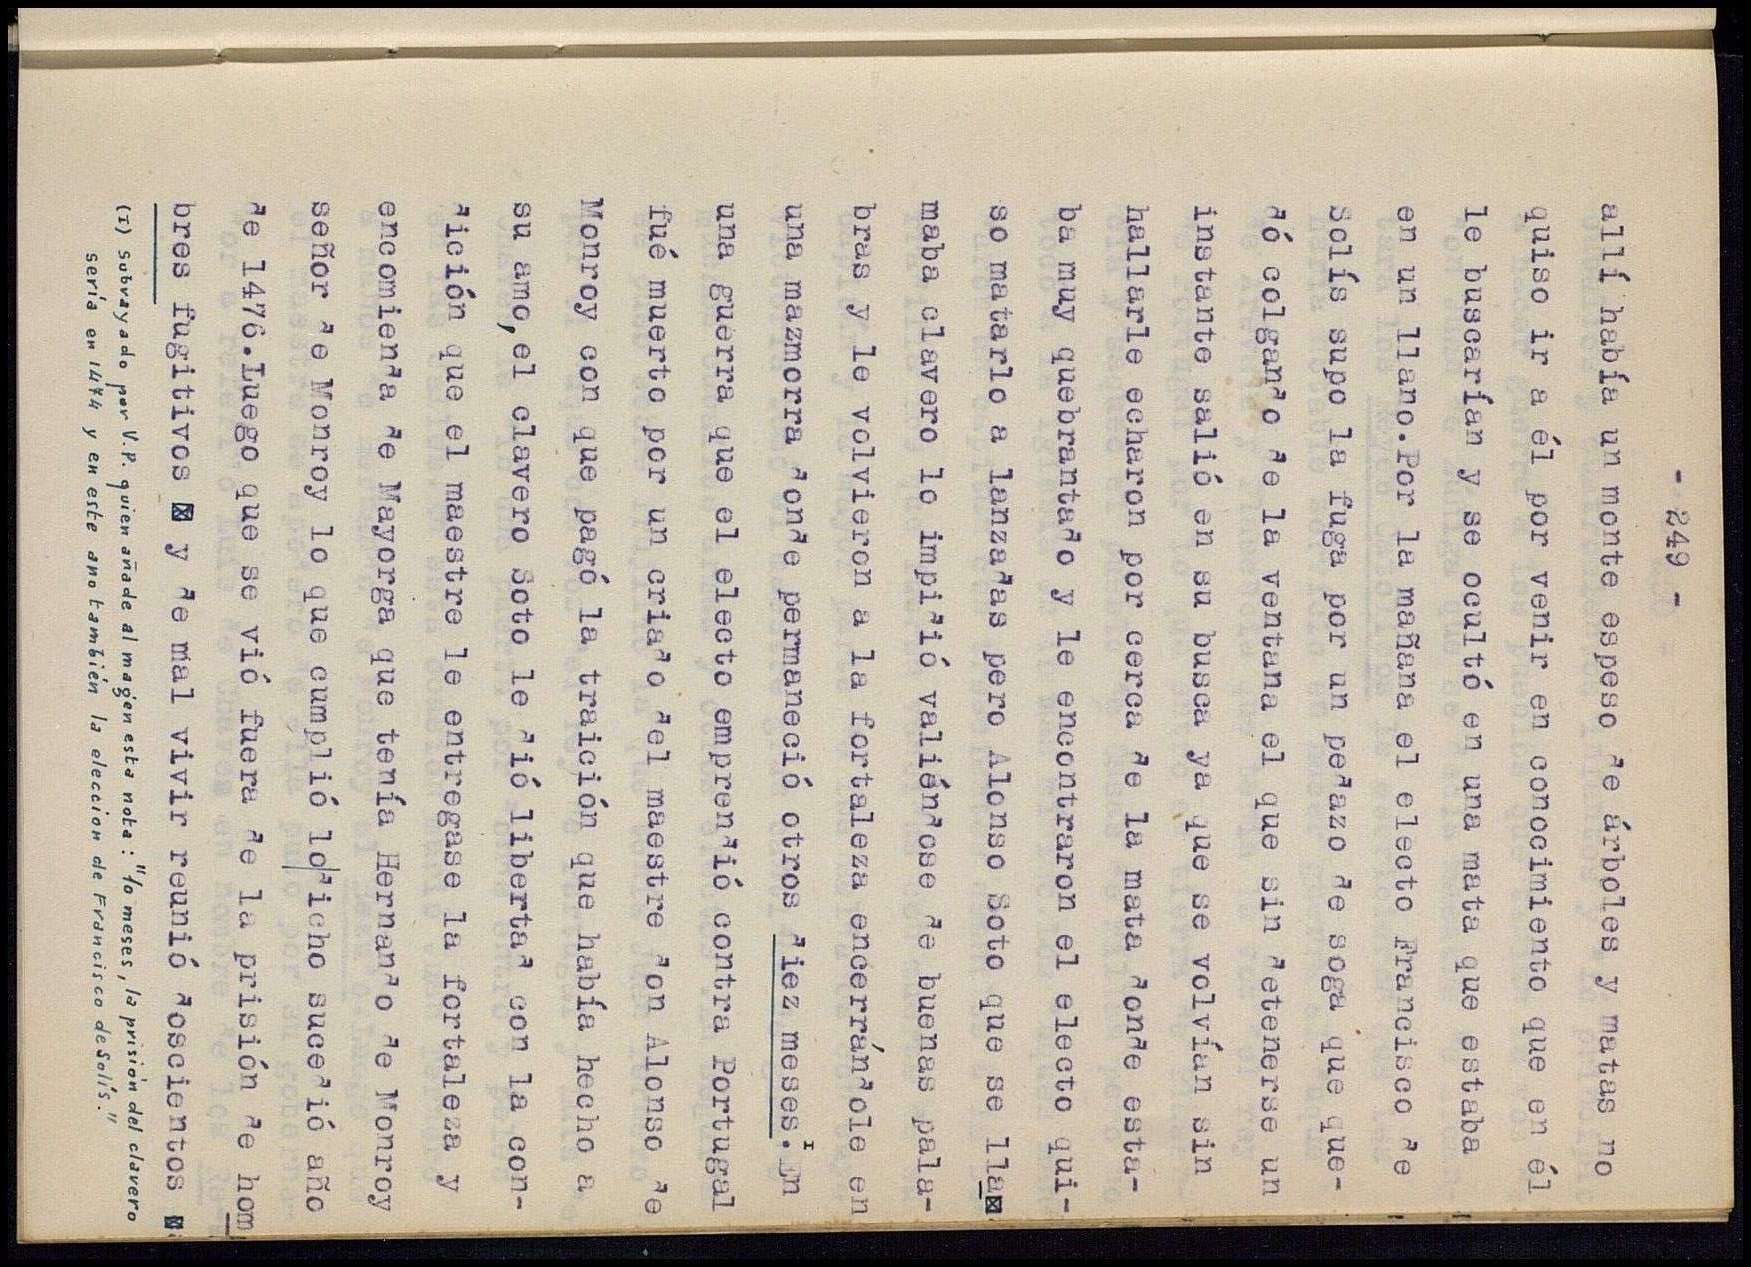 - 249 -
allí había un monte espeso de árboles y matas no
quiso ir a él por venir en conocimiento que en él
le buscarían y se ocultó en una mata que estaba
en un llano.Por la mañana el electo Francisco de
Solís supo la fuga por un pedazo de soga que que-
dó colgando de la ventana el que sin detenerse un
instante salió en su busca ya que se volvían sin
hallarle echaron por cerca de la mata donde esta-
ba muy quebrantado y le encontraron el electo qui-
so matarlo a lanzadas pero Alonso Soto que se lla
maba clavero lo impidió valiéndose de buenas pala-
bras y le volvieron a la fortaleza encerrándole en
una mazmorra donde permaneció otros diez meses.I En
una guerra que el electo emprendió contra Portugal
fué muerto por un criado del maestre don Alonso de
Monroy con que pagó la traición que había hecho a
su amo,el clavero Soto le dió libertad con la con-
dición que el maestre le entregase la fortaleza y
encomienda de Mayorga que tenía Hernando de Monroy
señor de Monroy lo que cumplió lo dicho sucedió año
de 1476.Luego que se vió fuera de la prisión de hom
bres fugitivos y de mal vivir reunió doscientos
(I) Subrayado por V.P. quien añade al magen esta nota: "10 meses, la prisión del clavero
sería en 1474 y en este ano también la eleccion de Francisco de Solís."